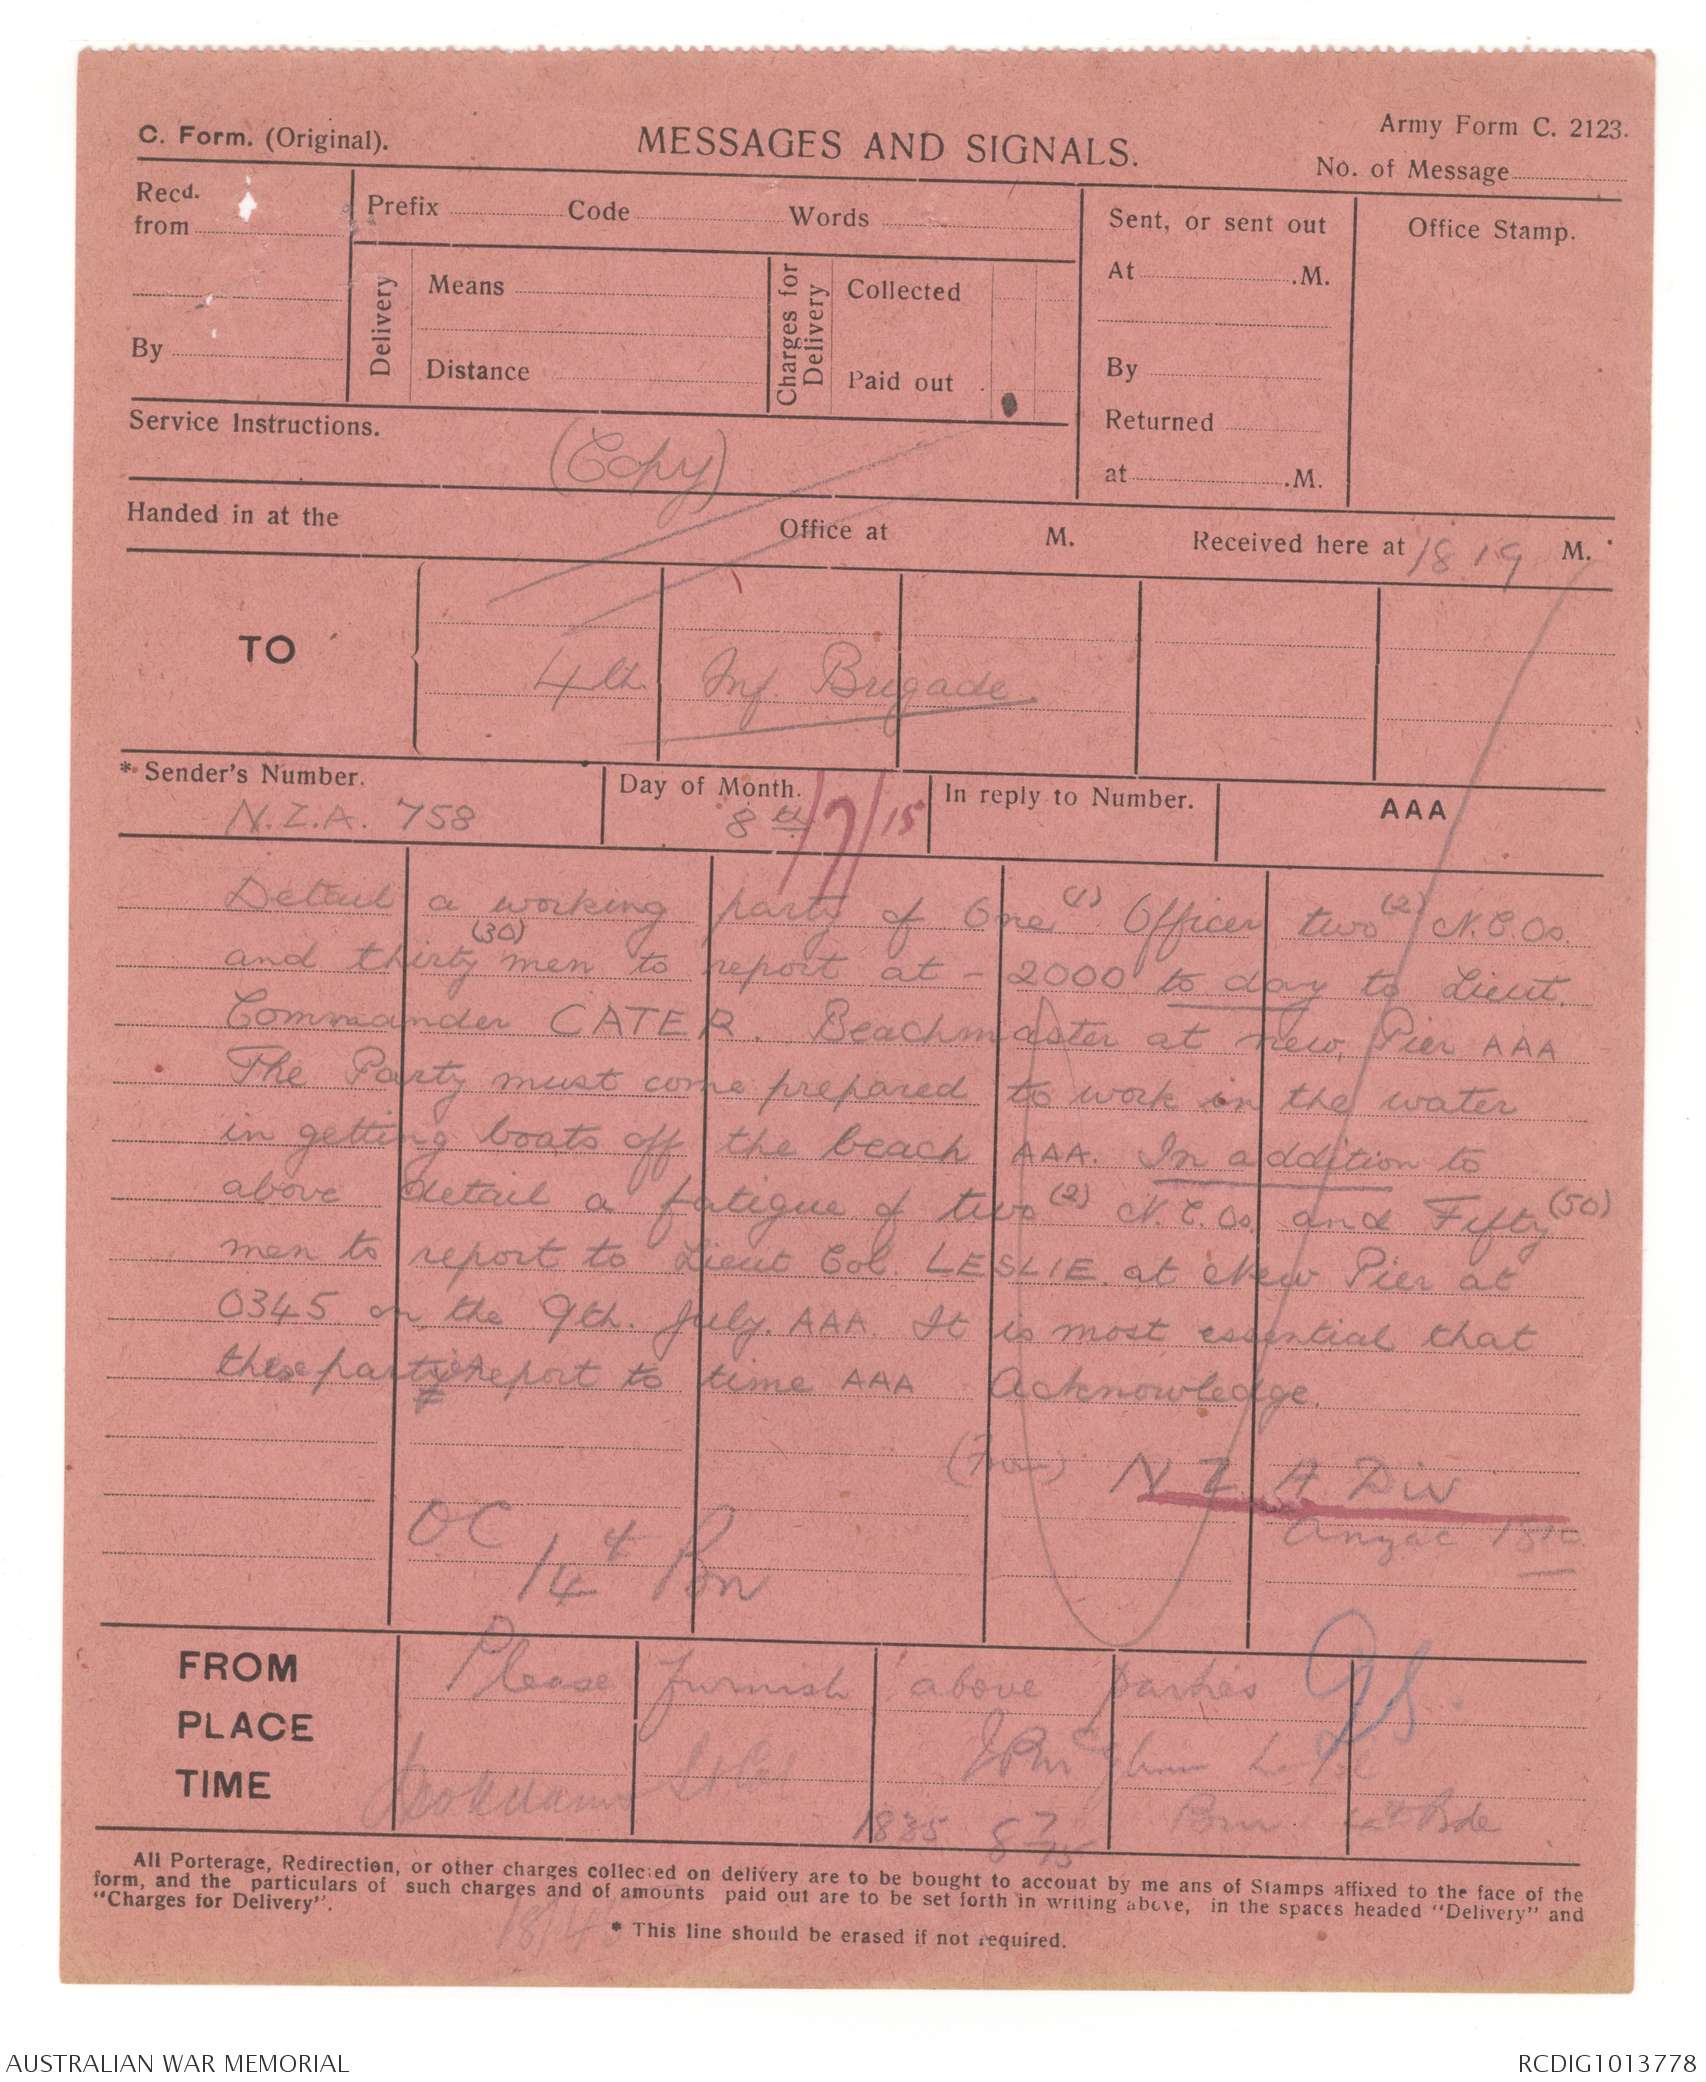 C. Form. (Original).
MESSAGES AND SIGNALS.
Army Form C. 2123.
No. of Message
Recd. from
By
Prefix Code Words
Delivery
Means
Distance
Charges for Delivery
Collected
Paid out
Sent, or sent out
At .M.
By
Returned
at .M.
Office Stamp.
Service Instructions.
(Copy)
Handed in at the Office at M. Received here at 1819 M.
TO
4th Inf. Brigade.
* Sender's Number.
N.Z.A. 758
Day of Month.
8th/7/15
In reply to Number.
AAA
Detail a working party of One (1) Officer two (2) N.C.Os.
and thirty (30) men to report at - 2000 to day to Lieut.
Commander CATER. Beachmaster at new Pier AAA
The Party must come prepared to work in the water
in getting boats off the beach AAA. In addition to
above detail a fatigue of two (2) N.C.Os. and Fifty (50)
men to report to Lieut Col. LESLIE. at New Pier at
0345 on the 9th. July. AAA. It is most essential that
these parties report to time AAA Acknowledge.
(From) N Z A Div
Anzac
OC
14th Bn
FROM
PLACE
TIME
Please furnish above parties
1835 8 7/15
4th Bde
All Porterage, Redirection, or other charges collected on delivery are to be bought to account by me ans of Stamps affixed to the face of the
form, and the particulars of such charges and of amounts paid out are to be set forth in writing above, in the spaces headed "Delivery" and
"Charges for Delivery".
* This line should be erased if not required.
AUSTRALIAN WAR MEMORIAL
RCDIG1013778